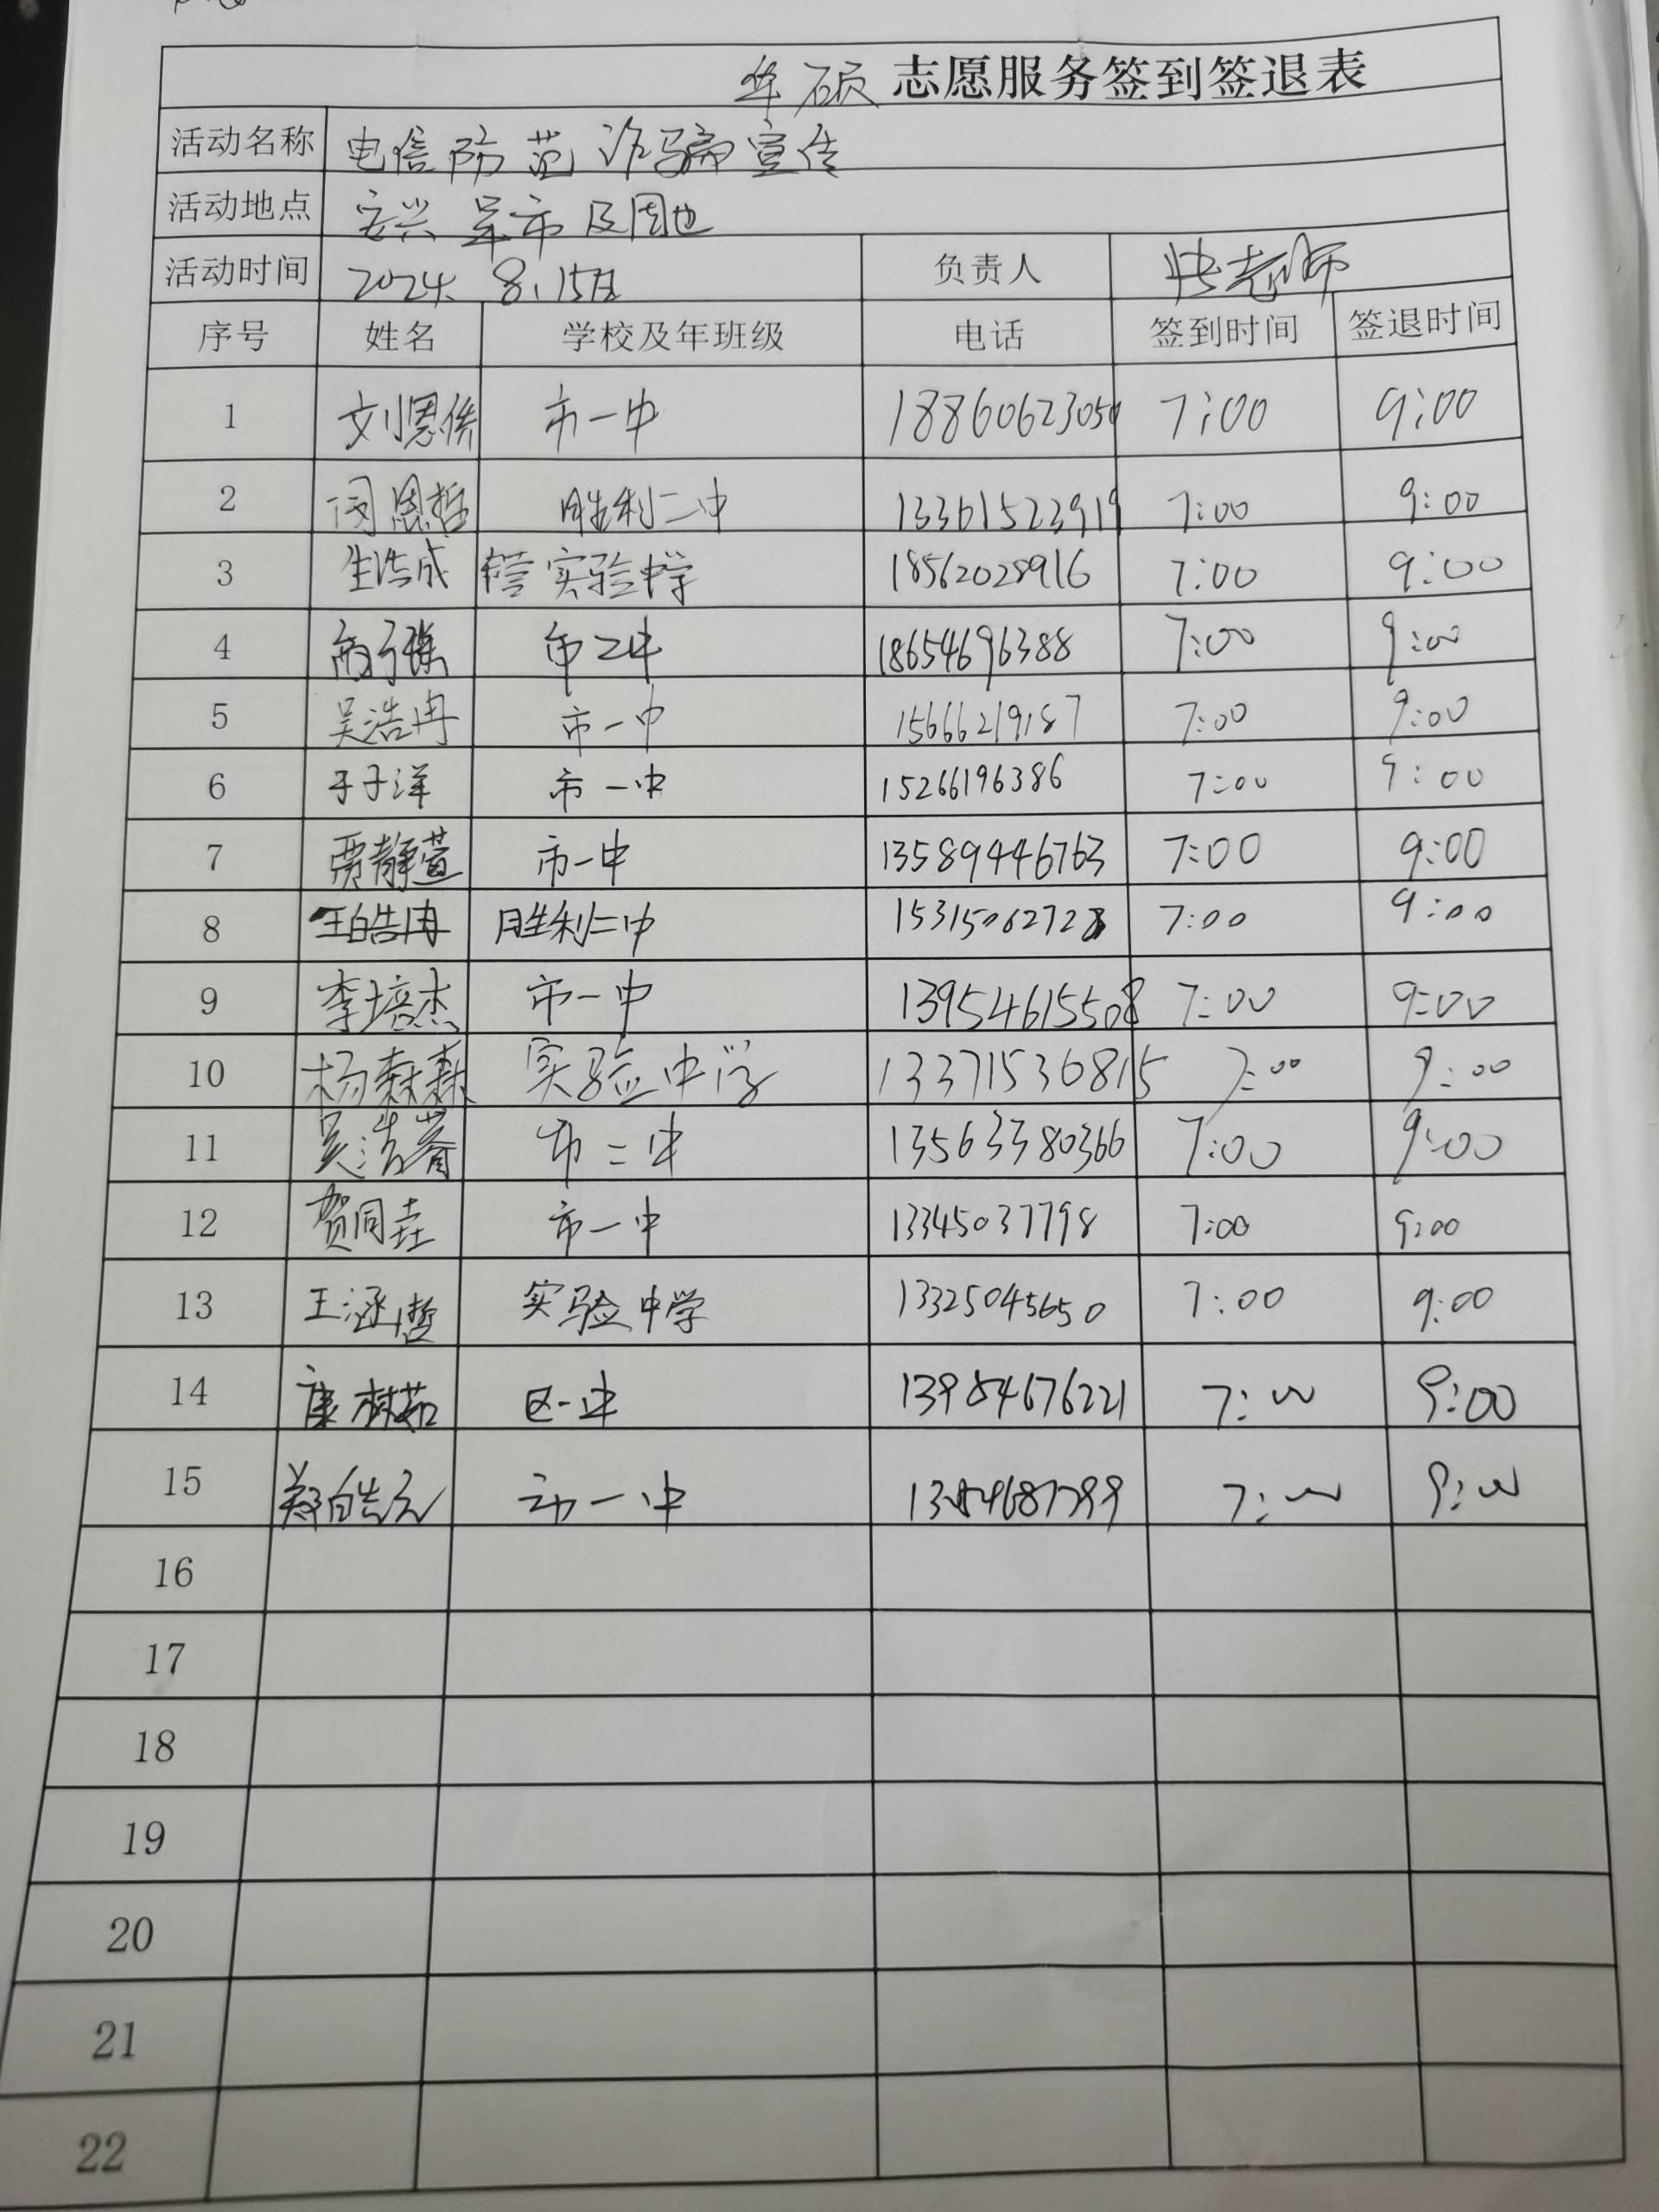 华硕 志愿服务签到签退表
活动名称 电信防范诈骗宣传
活动地点 安兴 早市及周边
活动时间 2024. 8.15日 负责人 张老师
序号 姓名 学校及年班级 电话 签到时间 签退时间
1 刘恩俟 市一中 1886062305 7:00 9:00
2 闫恩哲 胜利二中 13361523919 7:00 9:00
3 生浩成 实验中学 18562028916 7:00 9:00
4 市二中 18654696388 7:00 9:00
5 吴浩冉 市一中 15666219187 7:00 9:00
6 于子洋 市一中 15266196386 7:00 9:00
7 贾静萱 市一中 13589446763 7:00 9:00
8 王皓冉 胜利二中 15315062728 7:00 9:00
9 李培杰 市一中 13954615508 7:00 9:00
10 杨森森 实验中学 13371536815 7:00 9:00
11 吴浩菁 市二中 13563380366 7:00 9:00
12 贺同垚 市一中 13345037798 7:00 9:00
13 王涵哲 实验中学 13325045650 7:00 9:00
14 康树茹 区一中 13984676221 7:00 9:00
15 郑皓元 市一中 7:00 9:00
16
17
18
19
20
21
22